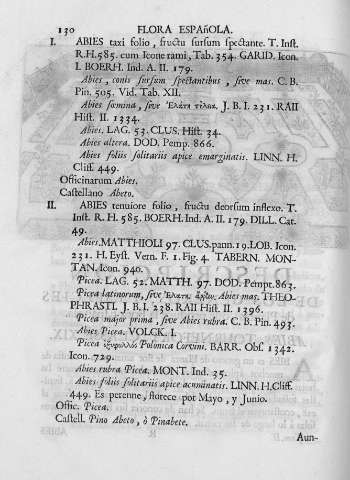 130 FLORA ESPAñOLA.
I. ABIES taxi folio, fructu sursum spectante. T. Inst.
R.H.585. cum Icone rami, Tab. 354. GARID. Icon.
I. BOERH. Ind. A. II. 179.
Abies, conis sursum spectantibus, sive mas. C. B.
Pin. 505. Vid. Tab. XII.
Abies fœmina, sive Ελατη J. B. I. 231. RAII
Hist. II. 1334.
Abies. LAG. 53. CLUS. Hist. 34.
Abies altera. DOD. Pemp. 866.
Abies foliis solitariis apice emarginatis. LINN. H.
Cliff. 449.
Officinarum Abies.
Castellano Abeto.
II. ABIES tenuiore folio, fructu deorsum inflexo. T.
Inst. R. H. 585. BOERH. Ind. A. II. 179. DILL. Cat.
49.
Abies. MATTHIOLI 97. CLUS. pann. 19. LOB. Icon.
231. H. Eyst. Vern. F. 1. Fig. 4. TABERN. MON-
TAN. Icon. 940.
Picea. LAG. 52. MATTH. 97. DOD. Pempt. 863.
Picea latinorum, sive Ελατη Abies mas. THEO-
PHRASTI. J. B. I. 238. RAII Hist. II. 1396.
Picea major prima, sive Abies rubra. C. B. Pin. 493.
Abies Picea. VOLCK. I.
Picea Polonica Corvini. BARR. Obs. 1342.
Icon. 729.
Abies rubra Picea. MONT. Ind. 35.
Abies foliis solitariis apice acuminatis. LINN. H. Cliff.
449. Es perenne, florece por Mayo, y Junio.
Offic. Picea.
Castell. Pino Abeto, ò Pinabete.
Aun-